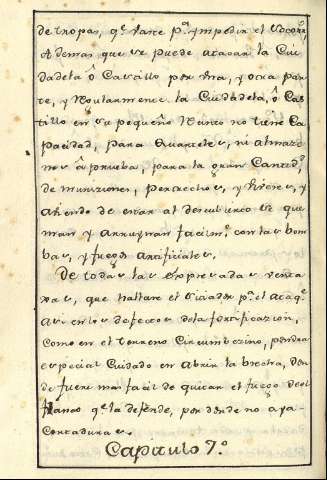 de tropas, qe. vaste pa. ympedir el socorro,
Ademas que se puede atacar la Ciu
dadela ô Castillo por vna, y otra par
te, y Regularmente la Ciudadela, ô Cas
tillo en su pequeño no tiene Ca
pacidad, para Quarteles, ni almaze
nes â prueba, para la gran Cantidd.
de muniziones, Pertrechos, y Viveres, y
âviendo de estar al descubierto se que
man y Arruynan facilmte. con las bom
bas, y fuegos Artificiales.
De todas las Expresadas venta
xas, que hallare el Sitiador pa. el Ataqe.
Asi en los defectos de la fortificazion,
Como en el terreno Circunvezino, pondra
especial Cuidado en Abrir la brecha, don
de fuere mas facil de quitar el fuego del
flanco qe. la defiende, por donde no aya
Cortaduras.
Capitulo 7.º